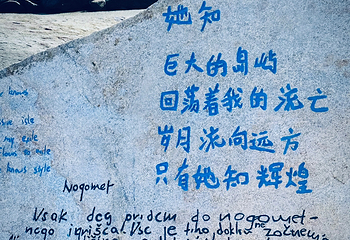 她知
巨大的岛屿
回荡着我的流亡
岁月流向远方
只有她知辉煌
knows
isle
my exile
knows style
Nogomet
Vsak dan pridem do nogomet-
nega igrišča. Vse je tiho, dokler ne začnemo